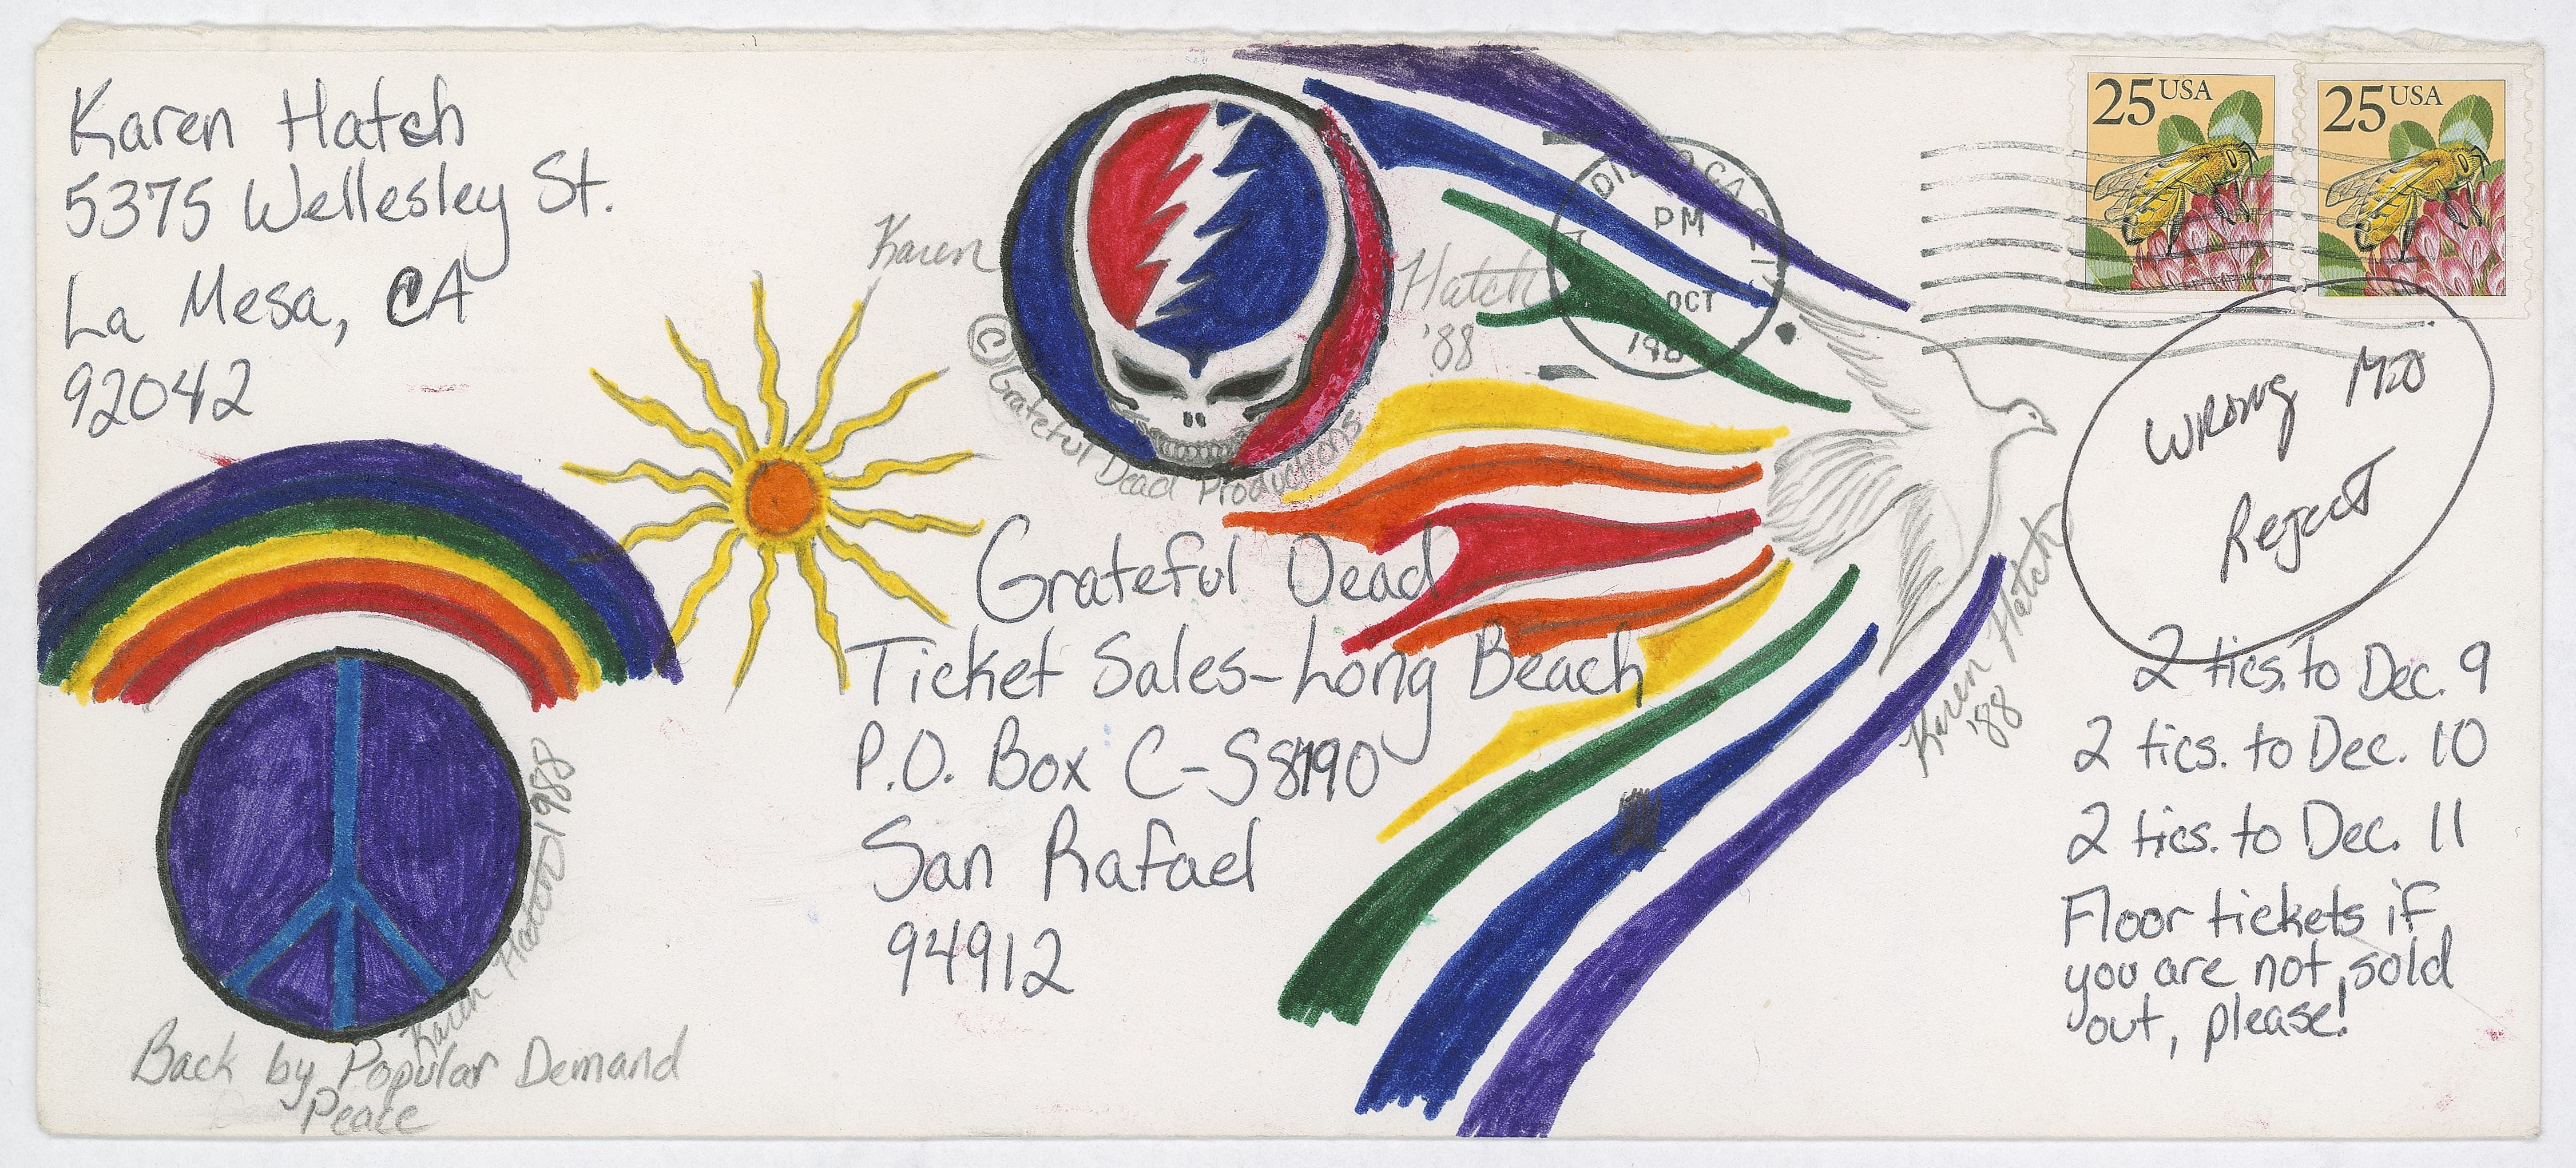 Karen Hatch
5375 Wellesley St.
La Mesa, CA
92042
Karen
Hatch
'88
© Grateful Dead Productions
PM
OCT
25 USA
25 USA
Wrong MO
Reject
Grateful Dead
Ticket Sales-Long Beach
P.O. Box C-S8190
San Rafael
94912
Karen Hatch
'88
2 tics. to Dec. 9
2 tics. to Dec. 10
2 tics. to Dec. 11
Floor tickets if
you are not sold
out, please!
Karen Hatch 1988
Back by Popular Demand
Peace